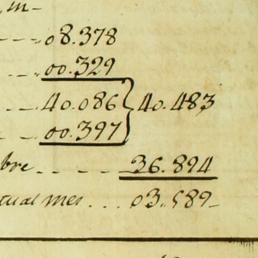 08.378
00.329
40.086 } 40.483
00.397
bre - - - - 36.894
tual mes - - - 03.589